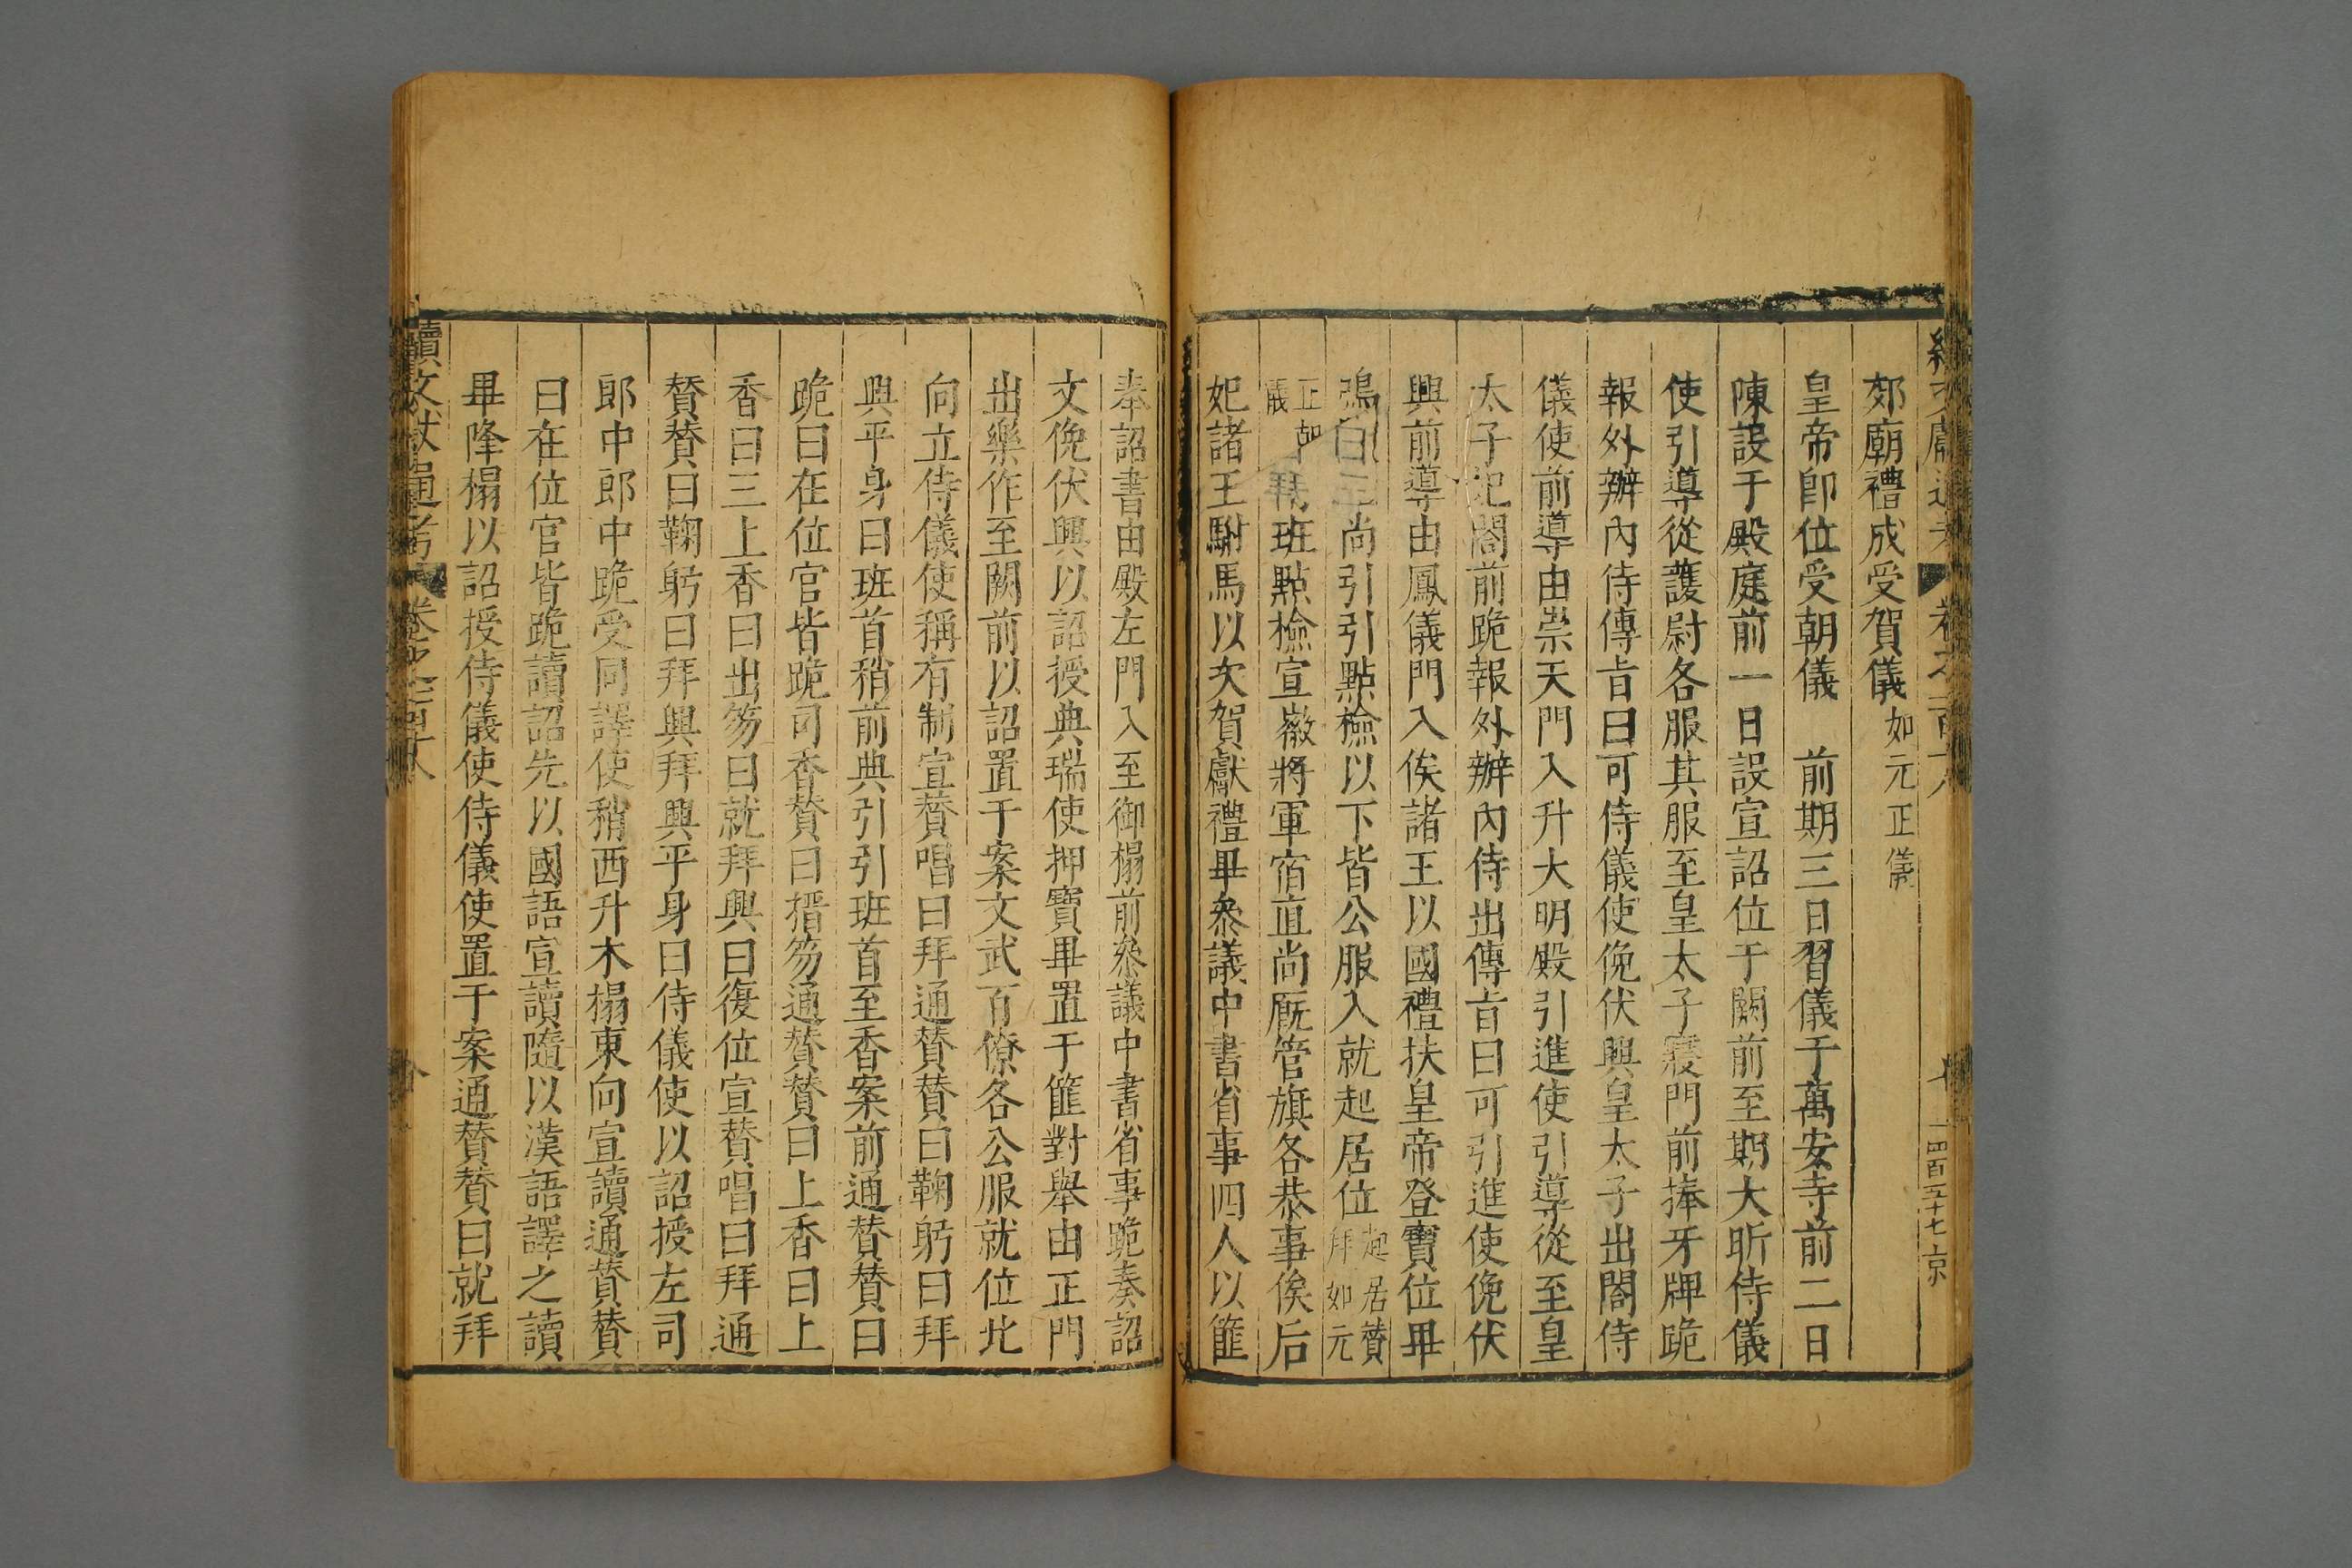 郊廟禮成受賀儀 如元正儀
皇帝卽位受朝儀 前期三日習儀于萬安寺前二日
陳設于殿庭前一日設宣詔位于闕前至期大昕侍儀
使引導從護尉各服其服至皇太子寢門前捧牙牌跪
報外辦內侍傳旨曰可侍儀使俛伏興皇太子出閤侍
儀使前導由崇天門入升大明殿引進使引導從至皇
太子妃閤前跪報外辦內侍出傳旨曰可引進使俛伏
興前導由鳳儀門入俟諸王以國禮扶皇帝登寶位畢
鳴 尚引引點檢以下皆公服入就起居位 起居贊拜如元
正 儀 拜 班點檢宣徽將軍宿直尚厩管旗各恭事俟后
妃諸王駙馬以次賀獻禮畢叅議中書省事四人以篚
奉詔書由殿左門入至御榻前叅議中書省事跪奏詔
文俛伏興以詔授典瑞使押寶畢置于篚對舉由正門
出樂作至闕前以詔置于案文武百僚各公服就位北
向立侍儀使稱有制宣贊唱曰拜通贊贊曰鞠躬曰拜
興平身曰班首稍前典引引班首至香案前通贊贊曰
跪曰在位官皆跪司香贊曰搢笏通贊贊曰上香曰上
香曰三上香曰出笏曰就拜興曰復位宣贊唱曰拜通
贊贊曰鞠躬曰拜興拜興平身曰侍儀使以詔授左司
郎中郎中跪受同譯使稍西升木榻東向宣讀通贊贊
曰在位官皆跪讀詔先以國語宣讀隨以漢語譯之讀
畢降榻以詔授侍儀使侍儀使置于案通贊贊曰就拜
續文獻通考 卷之